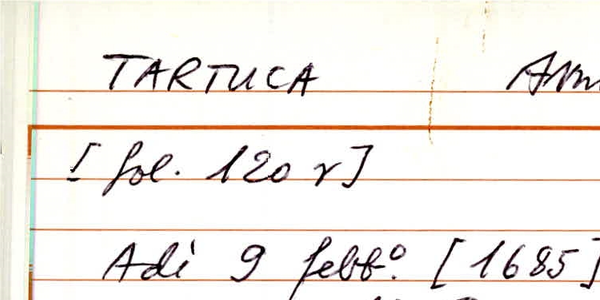 TARTUCA
[fol. 120 r]
Adì 9 febb.º [1685]